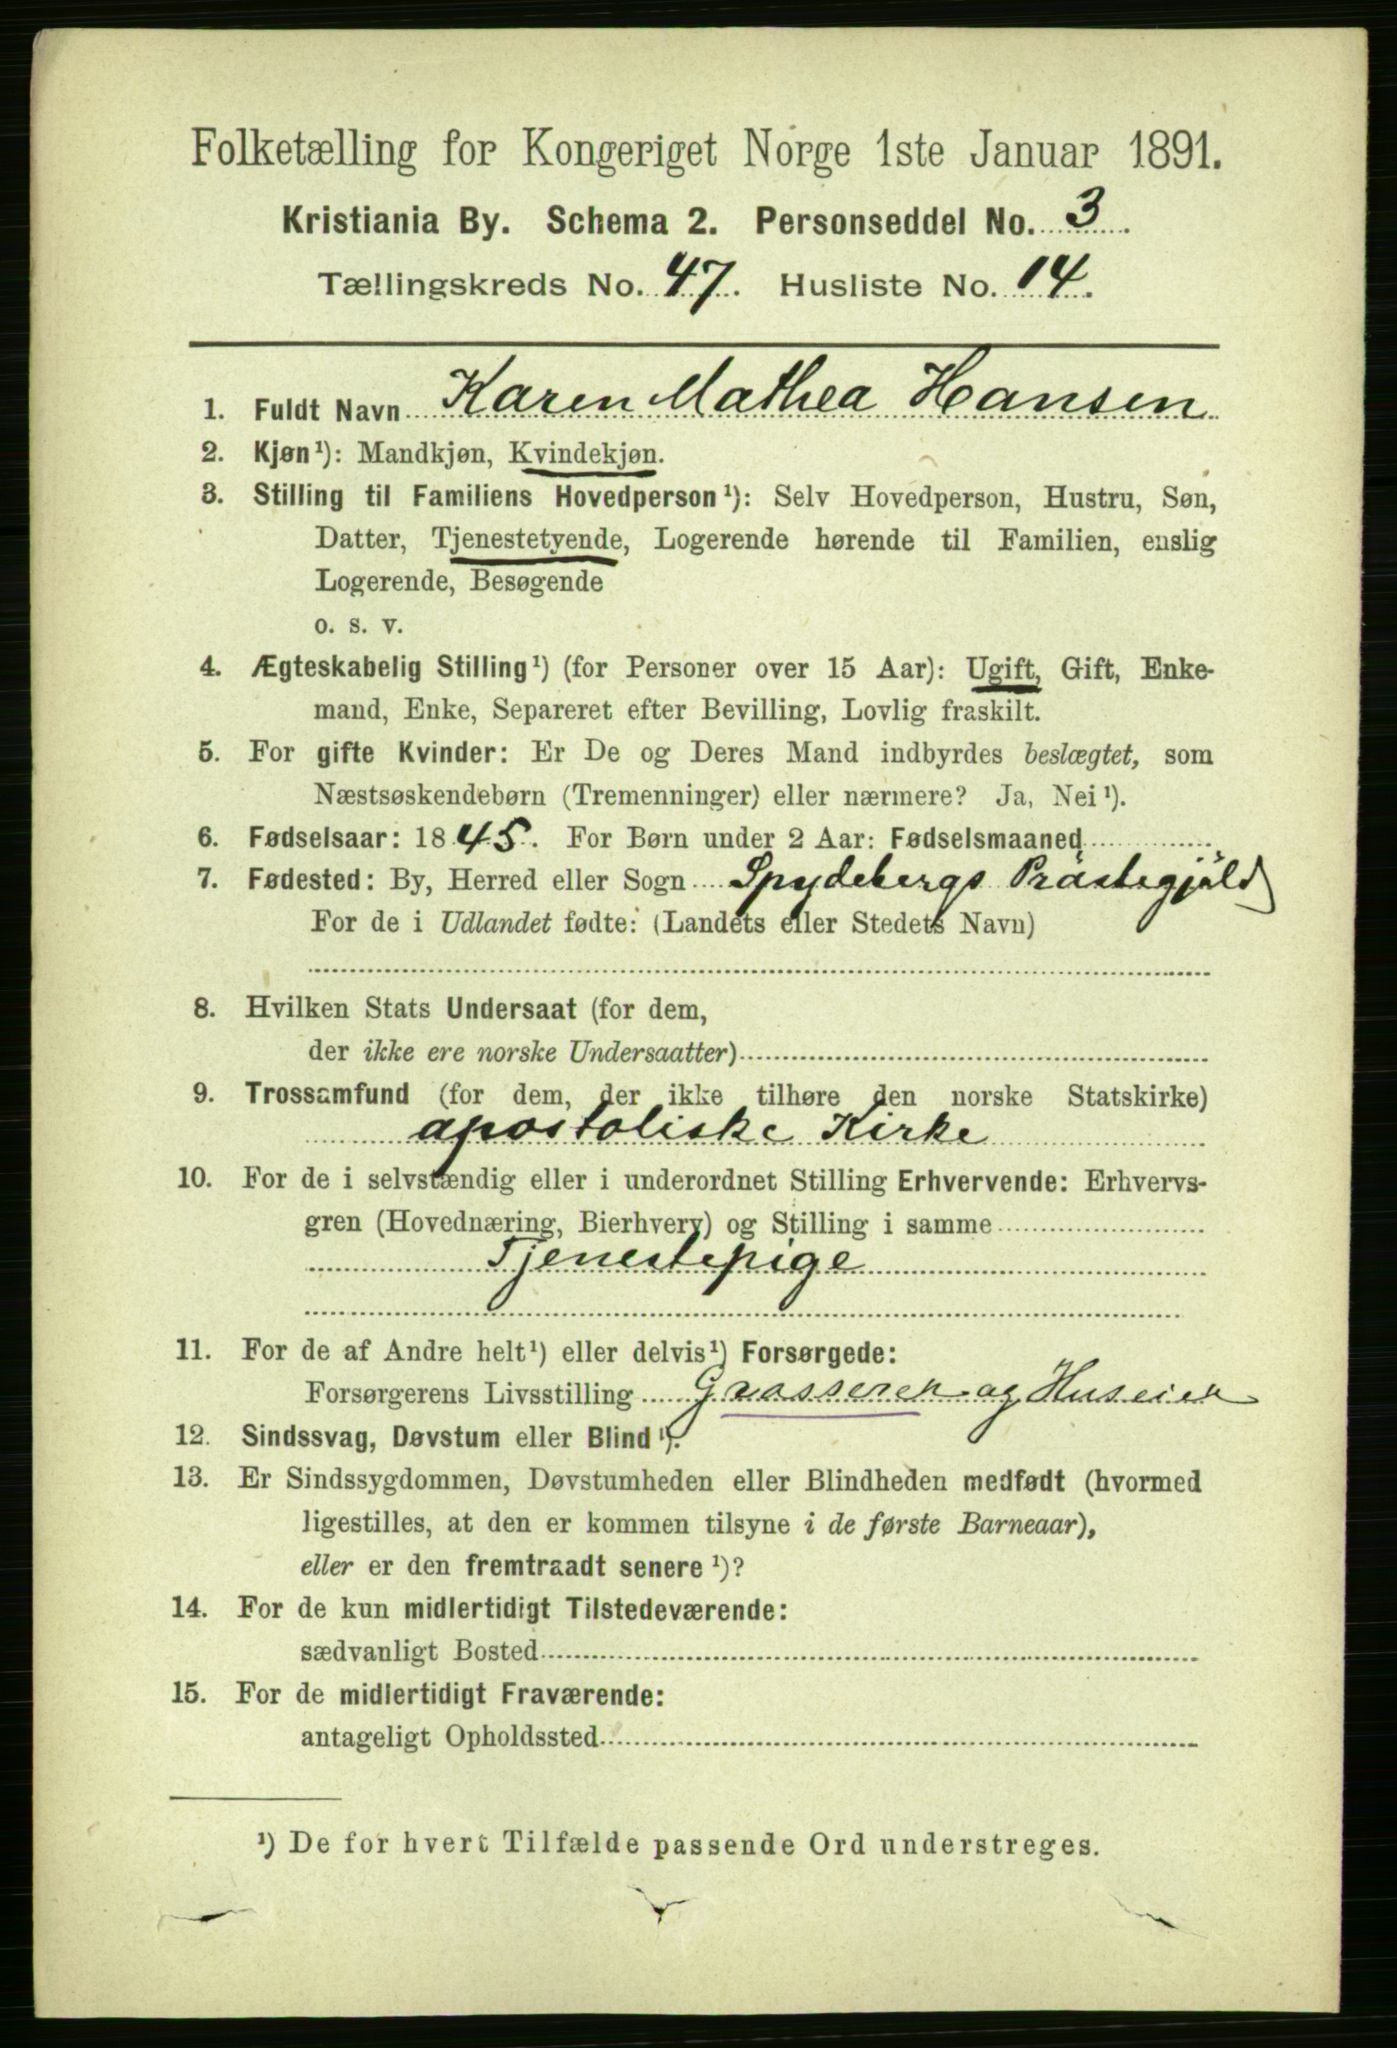 Folketælling for Kongeriget Norge 1ste Januar 1891.
Kristiania By. Schema 2. Personseddel No. 3.
Tællingskreds No. 47. Husliste No. 14.
1. Fuldt Navn Karen Mathea Hansen
2. Kjøn¹): Mandkjøn, Kvindekjøn.
3. Stilling til Familiens Hovedperson¹): Selv Hovedperson, Hustru, Søn,
Datter, Tjenestetyende, Logerende hørende til Familien, enslig
Logerende, Besøgende
o. s. v.
4. Ægteskabelig Stilling¹) (for Personer over 15 Aar): Ugift, Gift, Enke-
mand, Enke, Separeret efter Bevilling, Lovlig fraskilt.
5. For gifte Kvinder: Er De og Deres Mand indbyrdes beslægtet, som
Næstsøskendebørn (Tremenninger) eller nærmere? Ja, Nei¹).
6. Fødselsaar: 1845. For Børn under 2 Aar: Fødselsmaaned
7. Fødested: By, Herred eller Sogn Spydebergs Prästegjäld
For de i Udlandet fødte: (Landets eller Stedets Navn)
8. Hvilken Stats Undersaat (for dem,
der ikke ere norske Undersaatter)
9. Trossamfund (for dem, der ikke tilhøre den norske Statskirke)
apostoliske Kirke
10. For de i selvstændig eller i underordnet Stilling Erhvervende: Erhvervs-
gren (Hovednæring, Bierhverv) og Stilling i samme
Tjenestepige
11. For de af Andre helt¹) eller delvis¹) Forsørgede:
Forsørgerens Livsstilling Grosserer og Huseier
12. Sindssvag, Døvstum eller Blind¹).
13. Er Sindssygdommen, Døvstumheden eller Blindheden medfødt (hvormed
ligestilles, at den er kommen tilsyne i de første Barneaar),
eller er den fremtraadt senere¹)?
14. For de kun midlertidigt Tilstedeværende:
sædvanligt Bosted
15. For de midlertidigt Fraværende:
antageligt Opholdssted
¹) De for hvert Tilfælde passende Ord understreges.